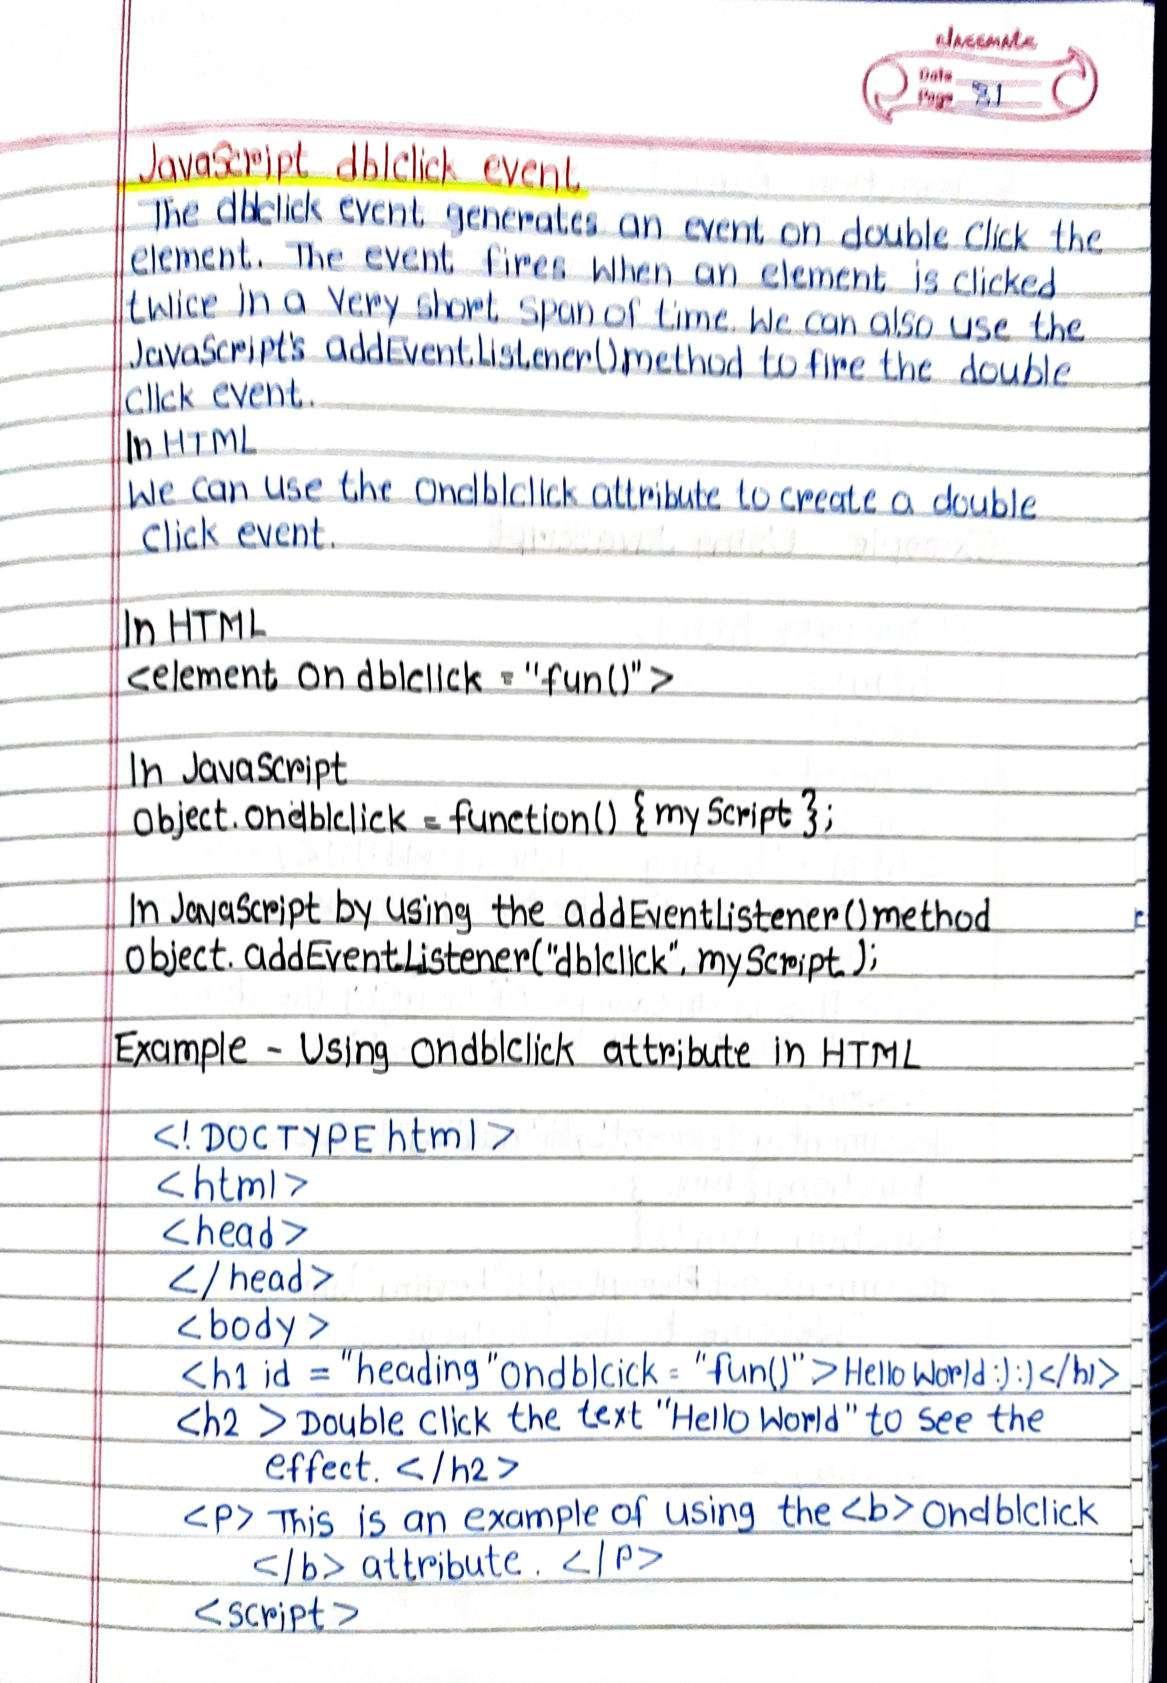 classmate
Date
Page 81
JavaScript dblclick event
The dblclick event generates an event on double click the
element. The event fires when an element is clicked
twice in a very short span of time. We can also use the
JavaScript's addEventListener() method to fire the double
click event.
In HTML
We can use the ondblclick attribute to create a double
click event.
In HTML
<element on dblclick = "fun()">
In JavaScript
object.ondblclick = function() { my Script };
In JavaScript by using the addEventListener() method
object. addEventListener("dblclick", my Script);
Example - Using ondblclick attribute in HTML
<!DOCTYPE html>
<html>
<head>
</head>
<body>
<h1 id = "heading" ondblcick = "fun()"> Hello World :) :) </h1>
<h2 > Double click the text "Hello World" to see the
effect. </h2>
<p> This is an example of using the <b> ondblclick
</b> attribute. </p>
<script>